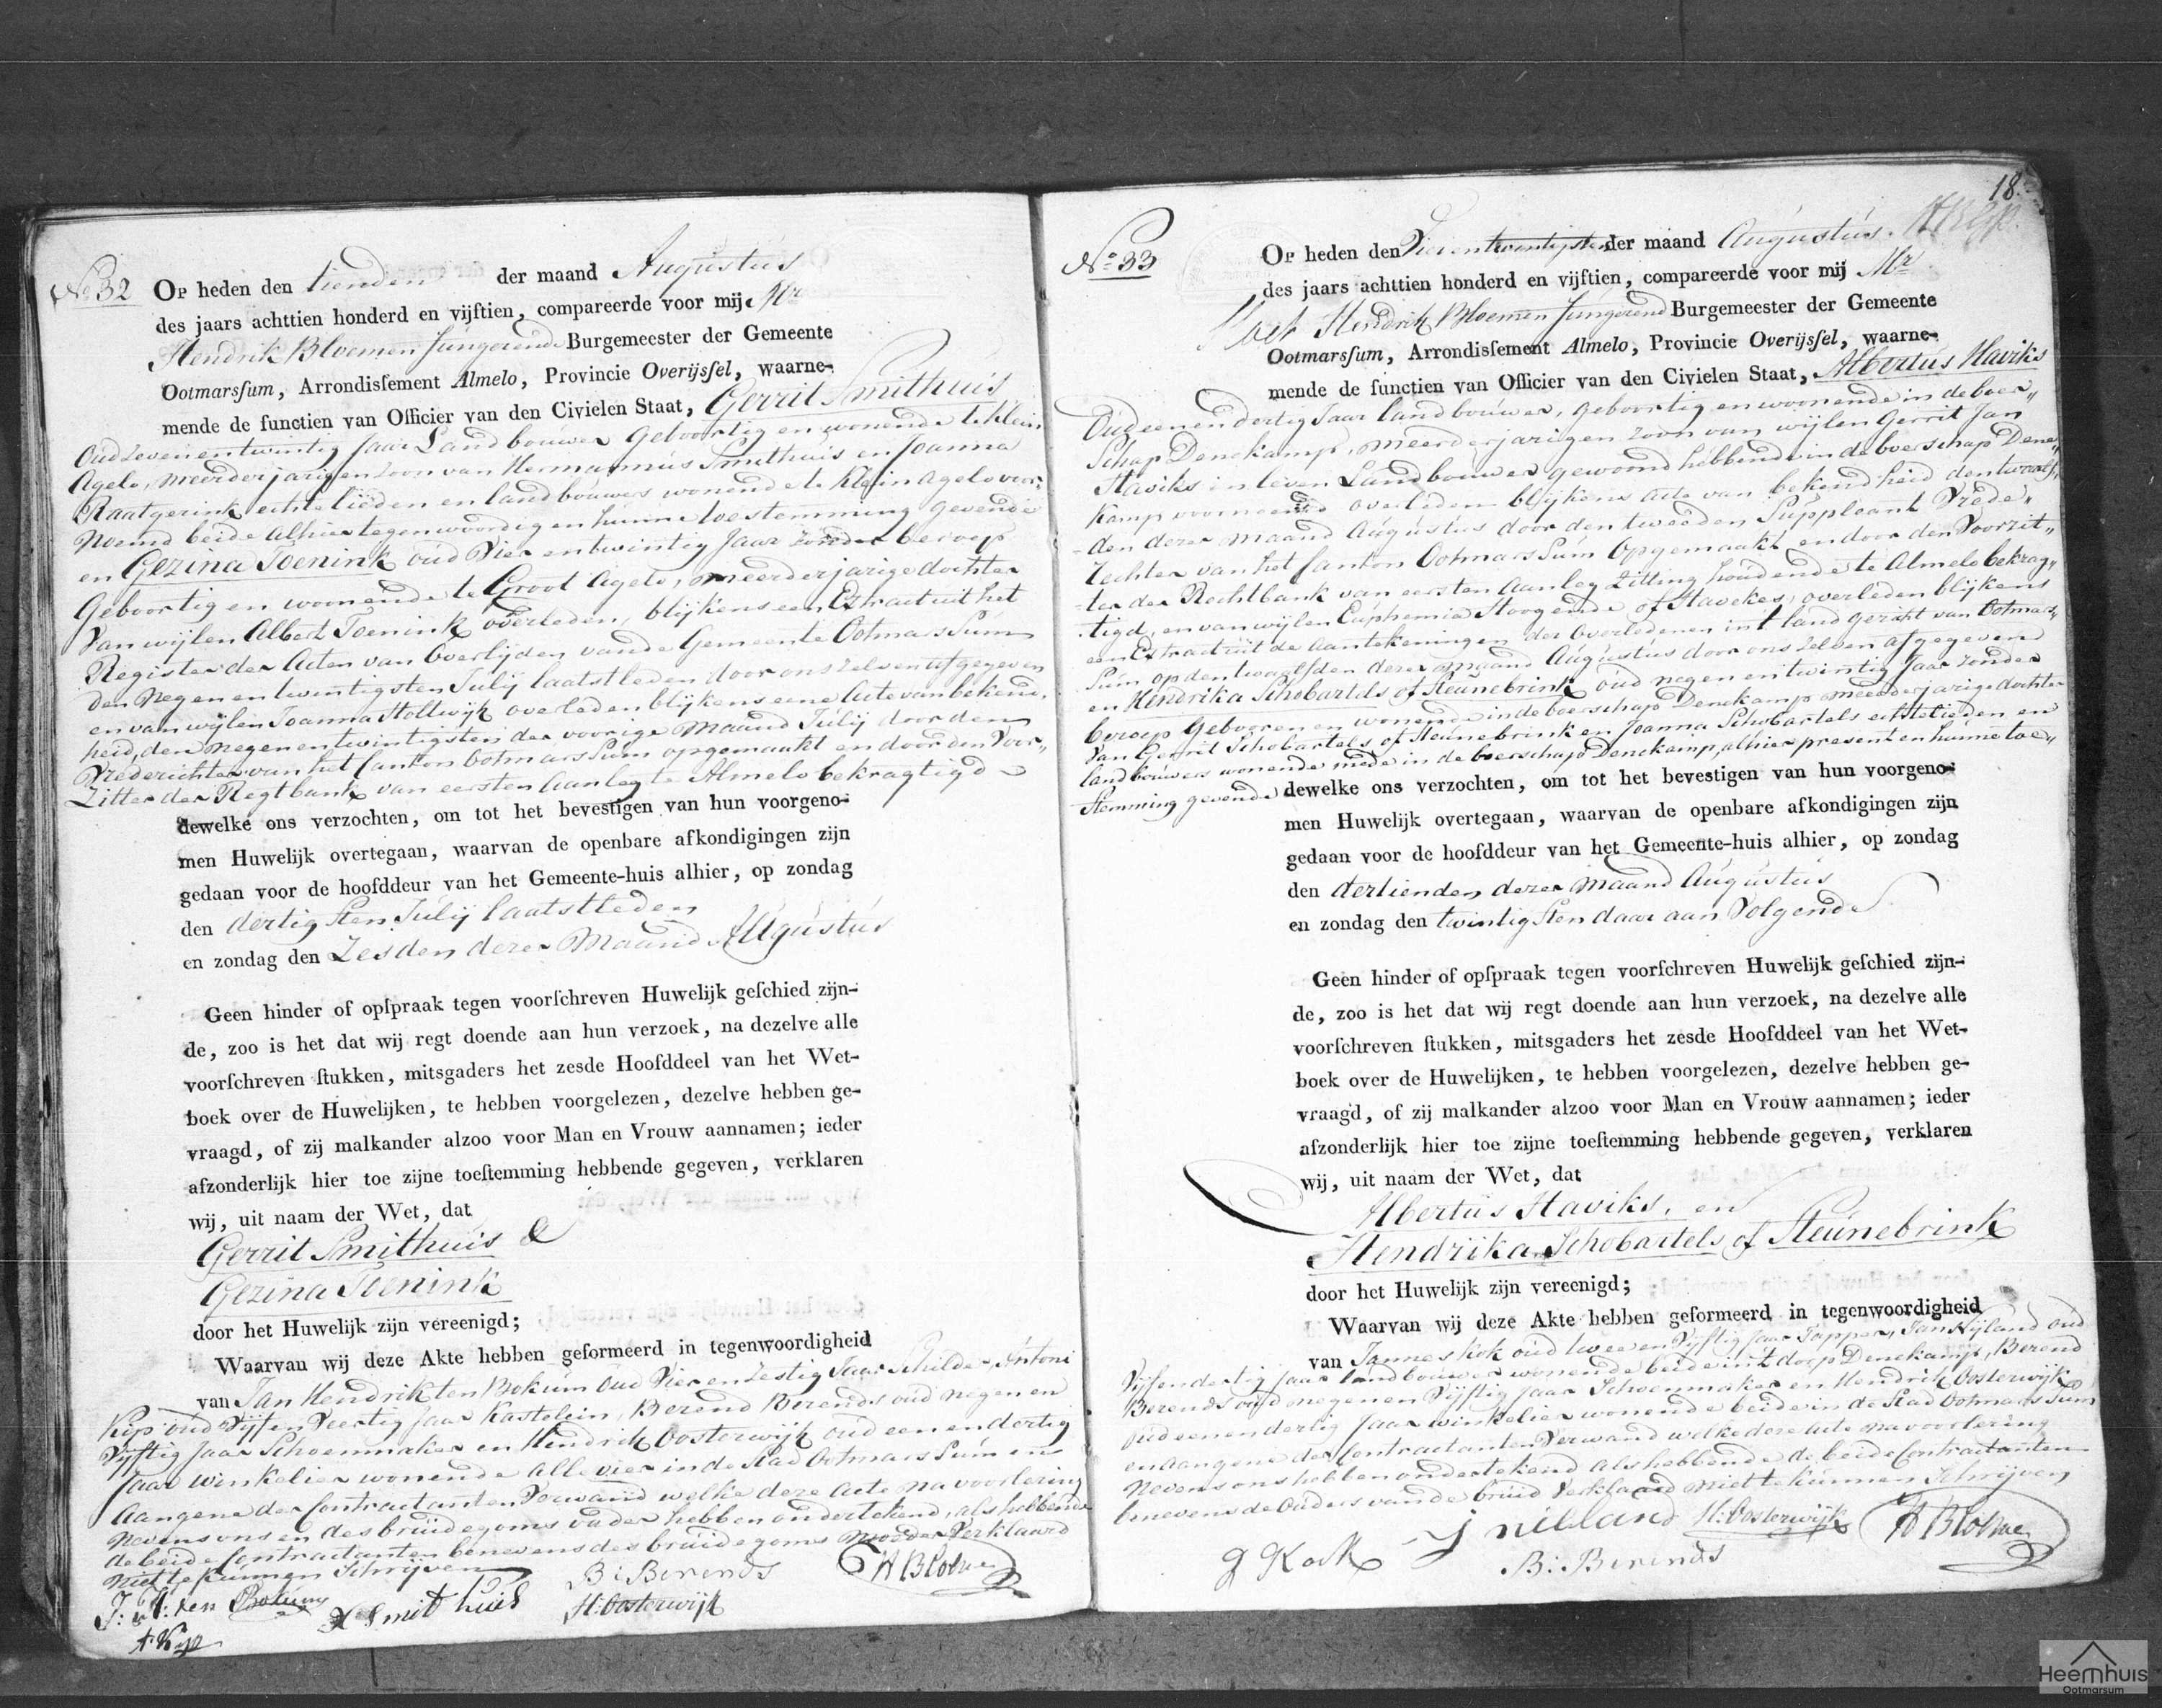 No 32 Op heden den tienden der maand Augustus
des jaars achttien honderd en vijftien, compareerde voor mij Mr
Hendrik Bloemen fungerend Burgemeester der Gemeente
Ootmarsſum, Arrondisſement Almelo, Provincie Overijsſel, waarne-
mende de functien van Officier van den Civielen Staat, Gerrit Smithuis
Oud Zeven en twintig Jaar Landbouwer geboortig en wonende te Klein
Agelo, meerderjarigen zoon van Hermannus Smithuis en Joanna
Raatgerink echtelieden en landbouwers wonende te Klein Agelo voor-
noemd beide Alhier tegenwoordig en hunne toestemming gevende
en Gezina Toenink oud Vier en twintig Jaar zonder beroep
Geboortig en woonende te Groot Agelo, meerderjarige dochter
Van wijlen Albert Toenink overleden, blijkens een Extract uit het
Register der Acten van Overlijden van de Gemeente Ootmarssum
den Negen en twintigsten Julij laatstleden door ons zelven afgegeven
en van wijlen Joanna Holtwijk overleden blijkens eene Acte van bekend-
heid, den negen en twintigsten der voorige Maand Julij door den
Vrederichter van het Canton Ootmarssum opgemaakt en door den Voor„
Zitter der Regtbank van eersten Aanleg te Almelo bekragtigd
dewelke ons verzochten, om tot het bevestigen van hun voorgeno-
men Huwelijk overtegaan, waarvan de openbare afkondigingen zijn
gedaan voor de hoofddeur van het Gemeente-huis alhier, op zondag
den dertigsten Julij laatstleden
en zondag den Zesden dezer Maand Augustus
Geen hinder of opſpraak tegen voorſchreven Huwelijk geſchied zijn-
de, zoo is het dat wij regt doende aan hun verzoek, na dezelve alle
voorſchreven ſtukken, mitsgaders het zesde Hoofddeel van het Wet-
boek over de Huwelijken, te hebben voorgelezen, dezelve hebben ge-
vraagd, of zij malkander alzoo voor Man en Vrouw aannamen; ieder
afzonderlijk hier toe zijne toeſtemming hebbende gegeven, verklaren
wij, uit naam der Wet, dat
Gerrit Smithuis &
Gezina Toenink
door het Huwelijk zijn vereenigd;
Waarvan wij deze Akte hebben geformeerd in tegenwoordigheid
van Jan Hendrik ten Bokum Oud Vier en Zestig Jaar Schilder, Antoni
Kip oud Vijf en Veertig Jaar Kastelein, Berend Berends oud negen en
Vijftig Jaar Schoenmaker en Hendrik Oosterwijk oud een en dertig
Jaar winkelier wonende alle vier in de Stad Ootmarssum en
Aangene der Contractanten Verwand welke deze Acte na voorlezing
nevens ons en des bruidegoms vader hebben ondertekend, als hebbende
de beide Contractanten benevens des bruidegoms moeder Verklaard
niet te kunnen Schrijven
J: H: ten Bokum H Smit huis B: Berends H Bloemen
A Kip H: Oosterwijk
18.
No 33 Op heden den Vierentwintigsten der maand Augustus
des jaars achttien honderd en vijftien, compareerde voor mij Mr
Hendrik Bloemen fungerend Burgemeester der Gemeente
Ootmarsſum, Arrondisſement Almelo, Provincie Overijsſel, waarne-
mende de functien van Officier van den Civielen Staat, Albertus Haviks
Oud een en dertig Jaar landbouwer, geboortig en woonende in de boer„
Schap Denekamp, meerderjarigen zoon van wijlen Gerrit Jan
Haviks in leven Landbouwer gewoond hebbende in de boerschap Dene„
kamp voornoemd overleden blijkens acte van bekendheid den twaalf„
den dezer maand Augustus door den tweeden Suppleant Vrede„
rechter van het Canton Ootmarssum Opgemaakt en door den Voorzit„
ter der Rechtbank van eersten Aanleg Zitting houdende te Almelo bekrag„
tigd, en van wijlen Euphemia Hoogende of Havekes, overleden blijkens
een Extract uit de Aantekeningen der Overledenen in 't land gericht van Ootmars„
sum op den twaalfden dezer maand Augustus door ons zelven afgegeven
en Hendrika Schobartels of Steunebrink oud negen en twintig Jaar zonder
beroep Gebooren en wonende in de boerschap Denekamp meerderjarige dochter
Van Gerrit Schobartels of Steunebrink en Joanna Schobartels echtelieden en
landbouwers wonende mede in de boerschap Denekamp, alhier present en hunne toe„
Stemming gevende dewelke ons verzochten, om tot het bevestigen van hun voorgeno-
men Huwelijk overtegaan, waarvan de openbare afkondigingen zijn
gedaan voor de hoofddeur van het Gemeente-huis alhier, op zondag
den dertienden dezer Maand Augustus
en zondag den twintigsten daar aan Volgende
Geen hinder of opſpraak tegen voorſchreven Huwelijk geſchied zijn-
de, zoo is het dat wij regt doende aan hun verzoek, na dezelve alle
voorſchreven ſtukken, mitsgaders het zesde Hoofddeel van het Wet-
boek over de Huwelijken, te hebben voorgelezen, dezelve hebben ge-
vraagd, of zij malkander alzoo voor Man en Vrouw aannamen; ieder
afzonderlijk hier toe zijne toeſtemming hebbende gegeven, verklaren
wij, uit naam der Wet, dat
Albertus Haviks, en
Hendrika Schobartels of Steunebrink
door het Huwelijk zijn vereenigd;
Waarvan wij deze Akte hebben geformeerd in tegenwoordigheid
van Jannes Kok oud twee en Vijftig Jaar Tapper, Jan Nijland oud
Vijfendertig Jaar landbouwer wonende beide in 't dorp Denekamp, Berend
Berends oud negen en Vijftig Jaar Schoenmaker en Hendrik Oosterwijk
oud een en dertig Jaar winkelier wonende beide in de Stad Ootmarssum
en aangene der Contractanten Verwand welke deze Acte na voorlezing
nevens ons hebben ondertekend als hebbende de beide Contractanten
benevens de Ouders van de bruid Verklaard niet te kunnen Schrijven
J Kok J nijland H: Oosterwijk H Bloemen
B: Berends
Heemhuis
Ootmarsum